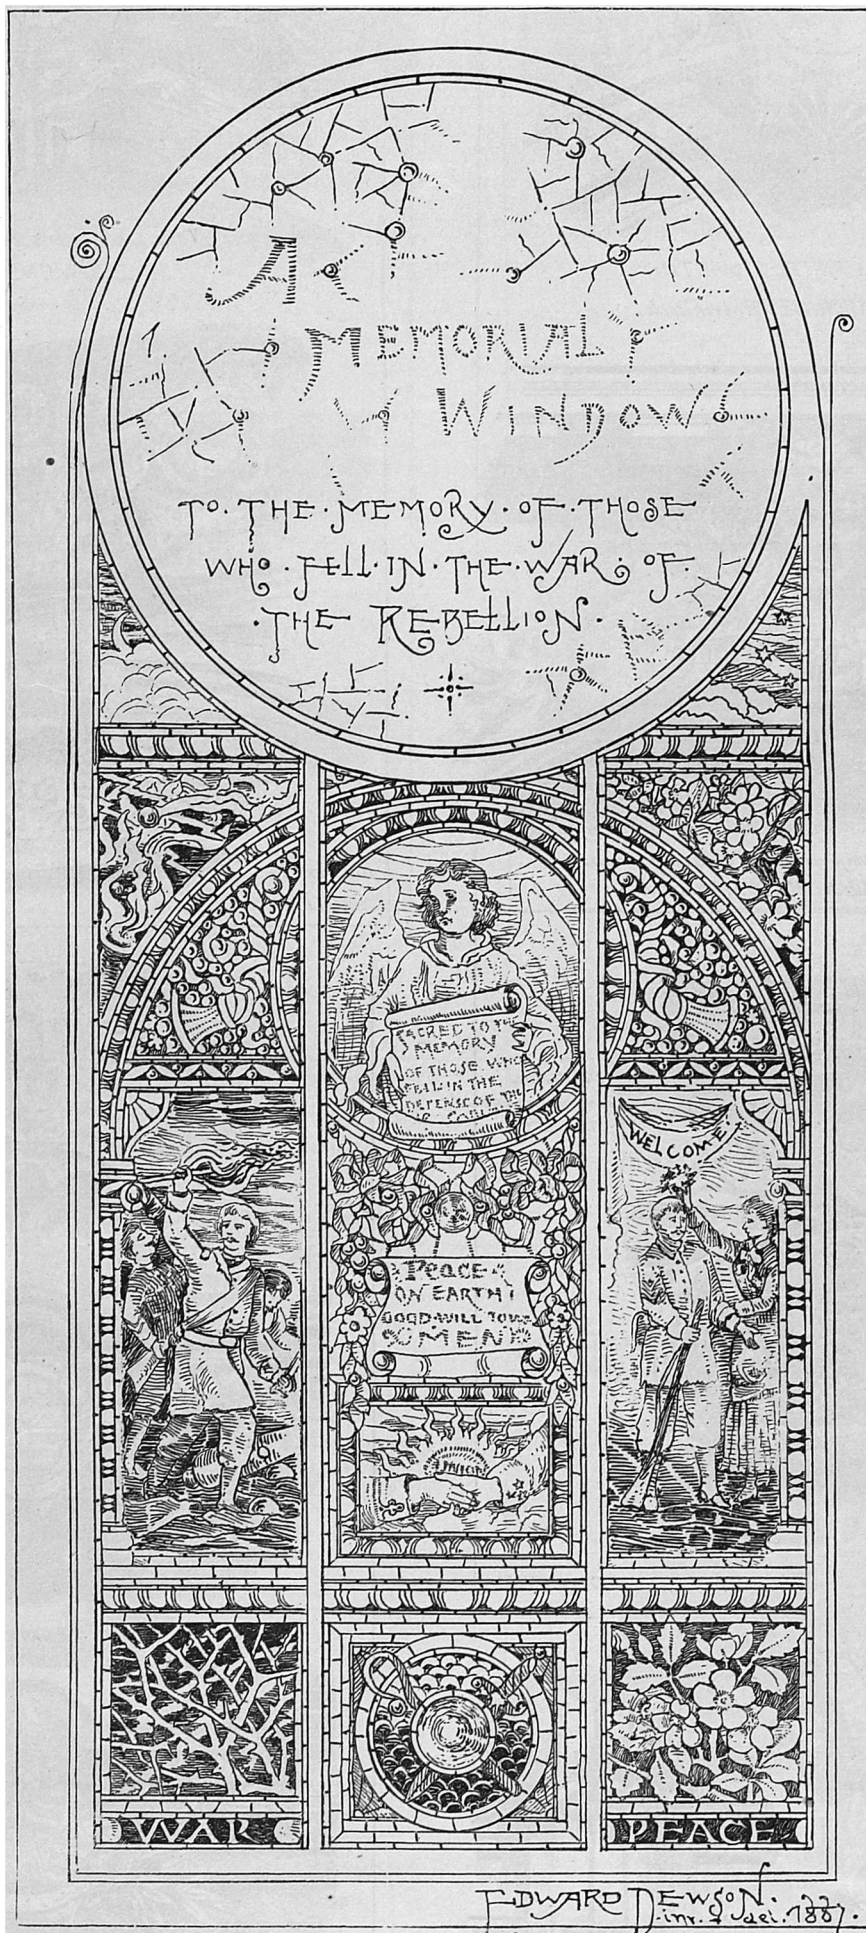 A
MEMORIAL
WINDOW
TO · THE · MEMORY · OF · THOSE
WHO · FELL · IN · THE · WAR · OF ·
· THE REBELLION ·
SACRED TO THE
MEMORY
OF THOSE WHO
FELL IN THE
DEFENSE OF THE
WELCOME
PEACE
ON EARTH
GOOD · WILL TOW
MEN
UNION
WAR
PEACE
EDWARD DEWSON ·
inv. + del. 1887 ·